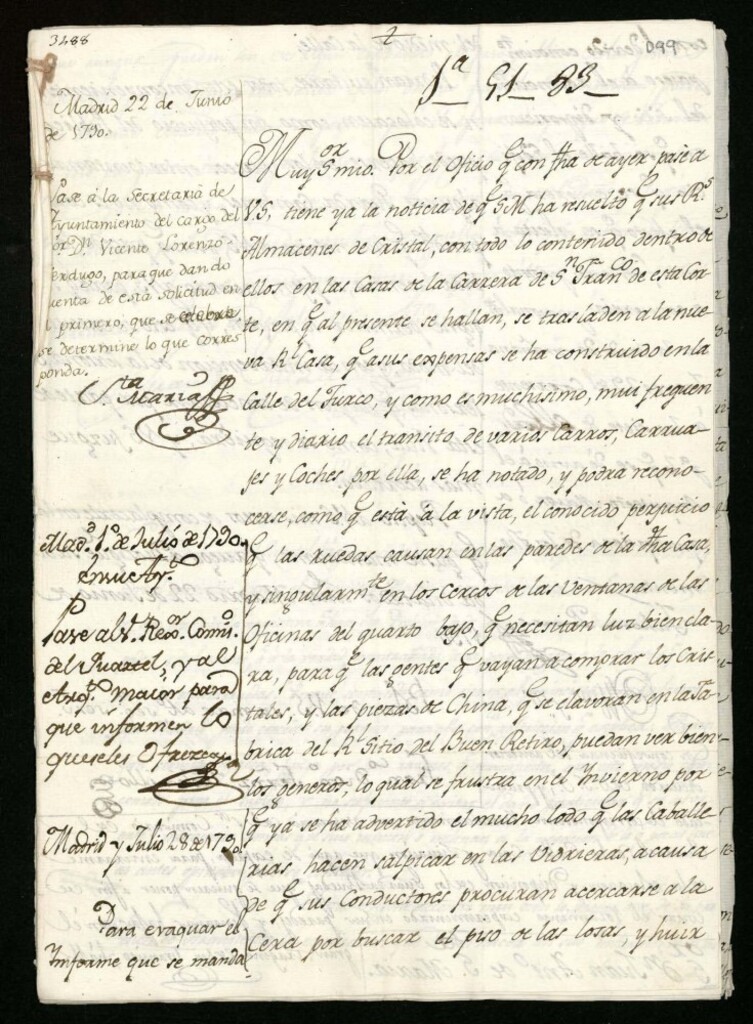 3488
2
099
1ª 51 83
Madrid 22 de Junio
de 1790.
Pase á la Secretaria de
Ayuntamiento del cargo del
Sor. Dn. Vicente Lorenzo
Verdugo, para que dando
cuenta de esta solicitud en
el primero, que se celebre
se determine lo que corres
ponda.
Sta. Maria
Madd. 1º. de Julio de 1790.
En su Aytº.
Pase al Sr. Rexor. Comisº.
del Quartel, y al
Arqto. maior para
que informen lo
que se les Ofrezca
Madrid y Julio 28 de 1790.
Para evaquar el
Informe que se manda
Muy Sor. mio. Por el Oficio q. con fha de ayer pasé a
V.S. tiene ya la noticia de q. S.M ha resuelto q. sus Rs.
Almacenes de Cristal, con todo lo contenido dentro de
ellos en las Casas de la Carrera de Sn. Franco. de esta Cor
te, en q. al presente se hallan, se trasladen a la nue
va Rl. Casa, q. a sus expensas se ha construido en la
Calle del Turco, y como es muchisimo, mui frequen
te y diario el transito de varios Carros, Carrua-
jes y Coches por ella, se ha notado, y podra recono-
cerse, como q. está á la vista, el conocido perjuicio
q. las ruedas causan en las paredes de la dha Casa,
y singularmte. en los Cercos de las Ventanas de las
Oficinas del quarto bajo, q. necesitan luz bien cla
ra, para q. las gentes q. vayan a comprar los Cris
tales, y las piezas de China, q. se elavoran en la Fa
brica del Rl. Sitio del Buen Retiro, puedan ver bien
los generos, lo qual se frustra en el Invierno por
q. ya se ha advertido el mucho lodo q. las Caballe
rias hacen salpicar en las Vidrieras, a causa
de q. sus Conductores procuran acercarse a la
Cera por buscar el piso de las losas, y huir